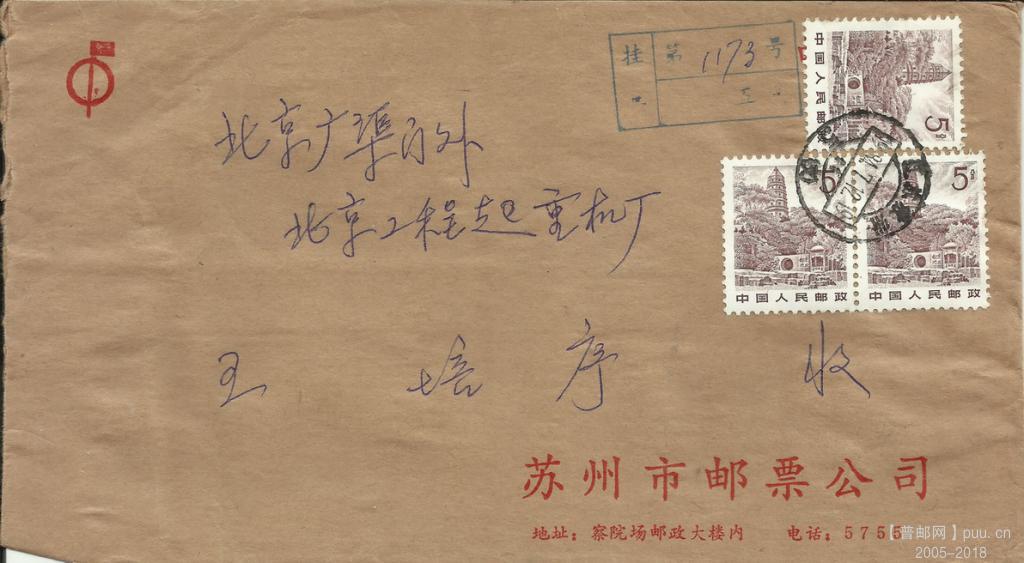 挂 第 1173 号
中国人民邮政
5
5
5
中国人民邮政
中国人民邮政
北京广渠门外
北京工程起重机厂
王 培 序 收
苏州市邮票公司
地址：察院场邮政大楼内 电话：5755
【普邮网】puu.cn
2005-2018